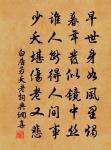 早世身如風里燭
暮年發似鏡中絲
誰人斷得人間事
少夭堪傷老又悲
白居易夭老